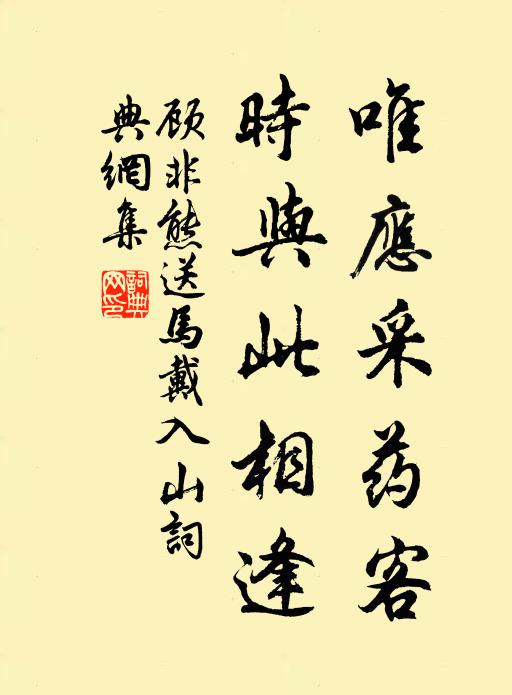 唯應采药客
時與此相逢
顾非熊送馬戴入山詞
典網集
詞典网印